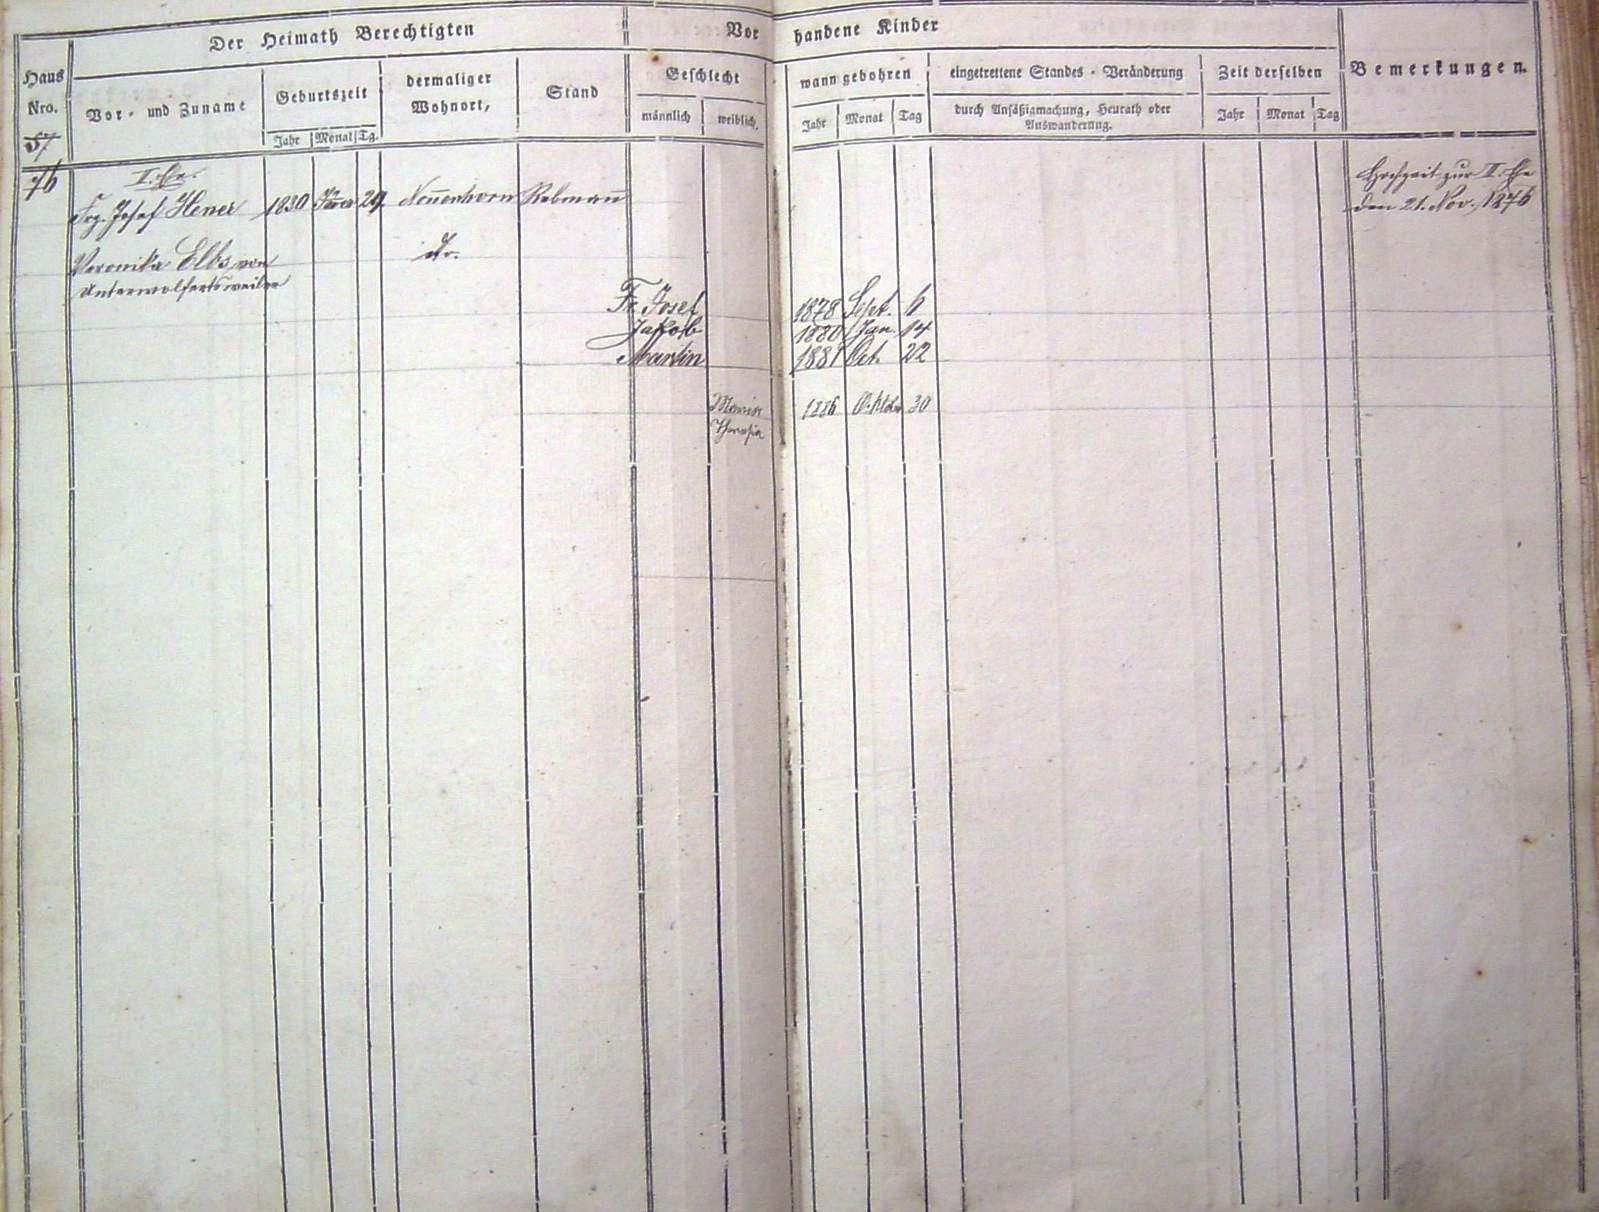 Der Heimath Berechtigten
Vorhandene Kinder
Haus Nro.
Vor- und Zuname
Geburtszeit
Jahr Monat Tg.
dermaliger Wohnort,
Stand
Geschlecht
männlich weiblich.
wann gebohren
Jahr Monat Tag
eingetrettene Standes-Veränderung
durch Ansäßigmachung, Heurath oder
Auswanderung.
Zeit derselben
Jahr Monat Tag
Bemerkungen.
57
76
II. Ehe.
Frz. Josef Hener 1830 29. Nonnenhorn Rebmann
Hochzeit zur II. Ehe
den 21. Nov. 1876
Veronika Elbs von do.
Unterwolfertsweiler
Fr. Josef 1878 Sept. 6
Jakob 1880 Jan. 14
Martin 1881 Oct. 22
Maria 1886 Oktbr 30
Theresia